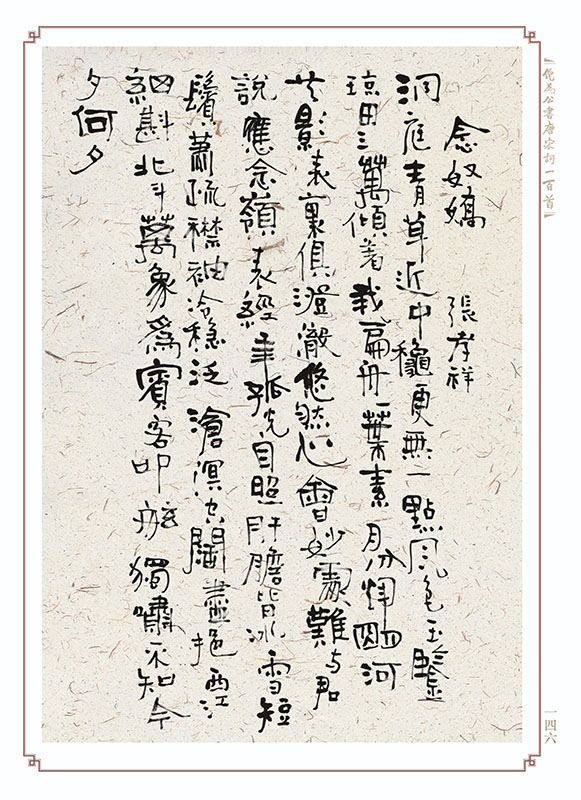 念奴嬌　張孝祥
洞庭青草近中龝更無一點風色玉鑒
琼田三萬傾著我扁舟一葉素月分煇朙河
共影表裏俱澄澈悠然心會妙處難与君
說應念嶺表經年孤光自照肝膽皆冰雪短
鬢蕭疏襟袖冷穩泛滄溟空闊盡挹西江
細斟北斗萬象爲賓客叩舷獨嘯不知今
夕何夕
倪為公書唐宋詞一百首
一四六